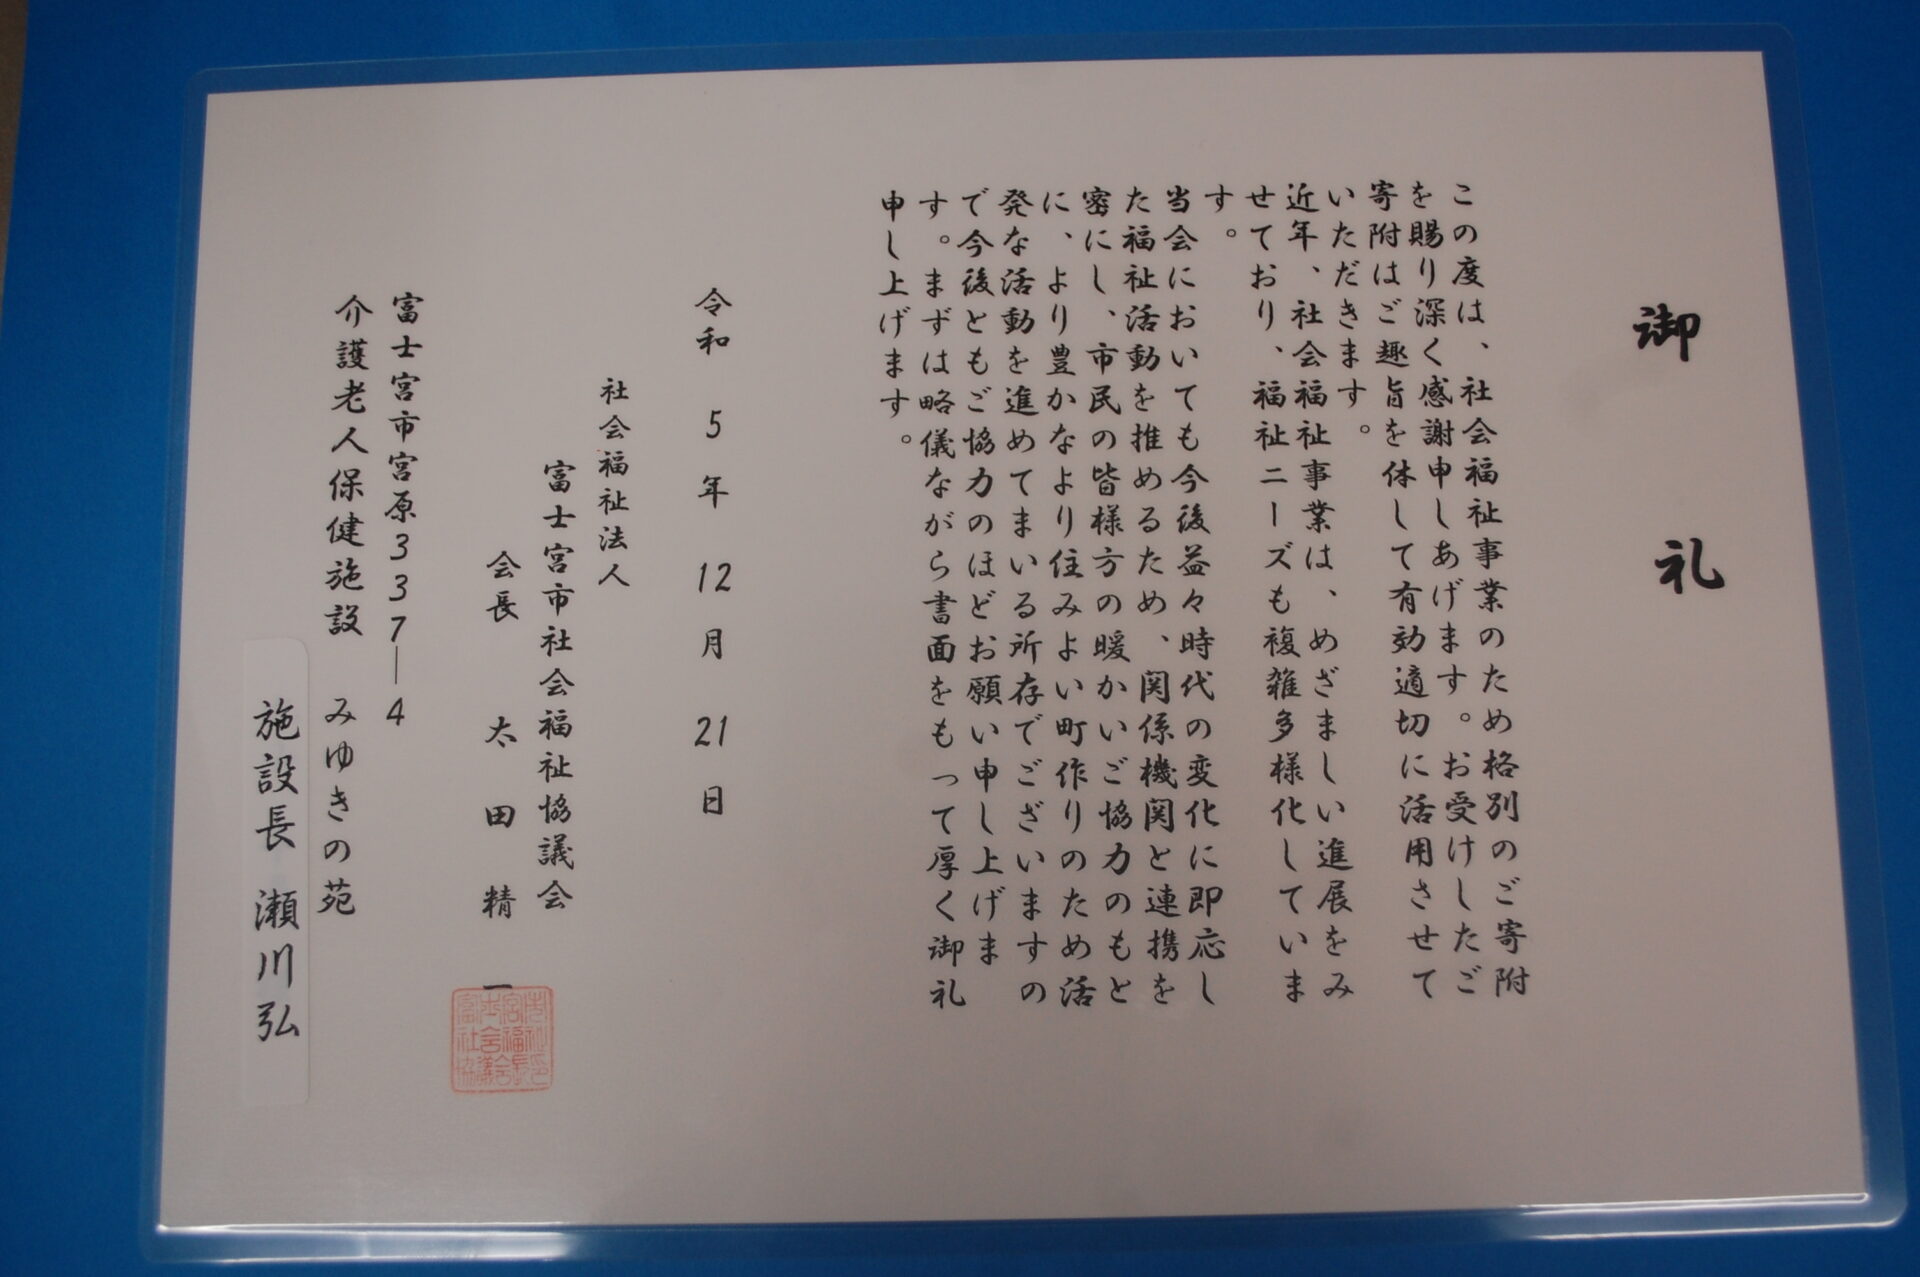 御礼
この度は、社会福祉事業のため格別のご寄附
を賜り深く感謝申しあげます。お受けしたご
寄附はご趣旨を体して有効適切に活用させて
いただきます。
近年、社会福祉事業は、めざましい進展をみ
せており、福祉ニーズも複雑多様化していま
す。
当会においても今後益々時代の変化に即応し
た福祉活動を推めるため、関係機関と連携を
密にし、市民の皆様方の暖かいご協力のもと
に、より豊かなより住みよい町作りのため活
発な活動を進めてまいる所存でございますの
で今後ともご協力のほどお願い申し上げま
す。まずは略儀ながら書面をもって厚く御礼
申し上げます。
令和 5年 12月 21日
社会福祉法人
富士宮市社会福祉協議会
会長 太田精一
富士宮市宮原337―4
介護老人保健施設 みゆきの苑
施設長 瀬川弘